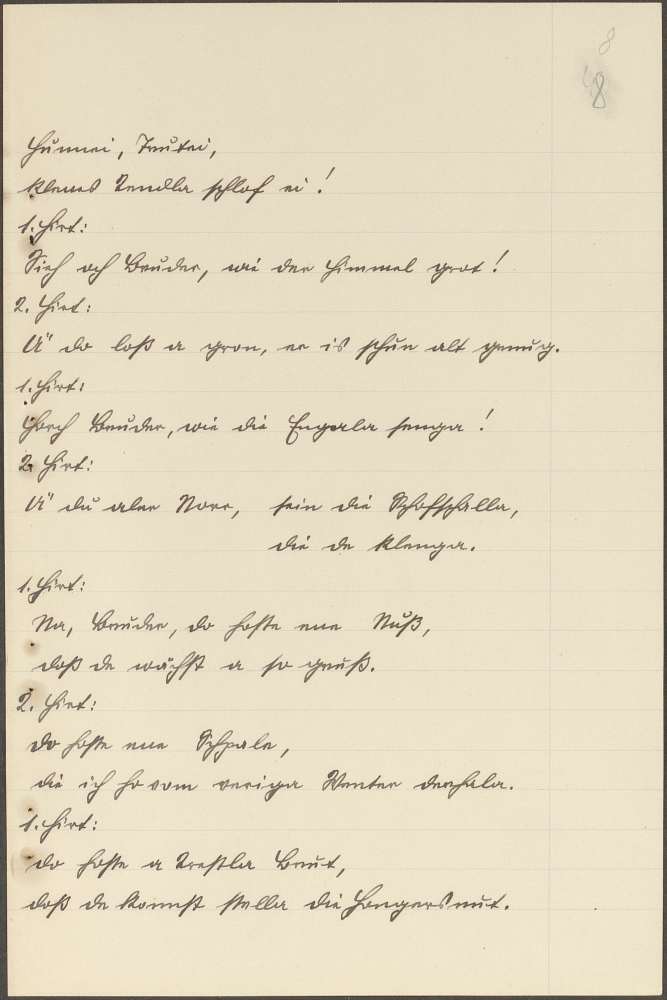 8
8
Hunnei, Trutei,
klenes Kendla schlof ei!
1. Hirt:
Sieh och Bruder, wie der Himmel grot!
2. Hirt:
U" do loß a gron, er is schun alt genug.
1. Hirt:
Horch Bruder, wie die Engala senga!
2. Hirt:
U" du aler Norr, sein die Schofschalla,
die de klenga.
1. Hirt:
Na, Bruder, do hoste ene Nuß,
doß de wächst a so gruß.
2. Hirt:
do hoste ene Schpale,
die ich ho vom veriga Wenter derhala.
1. Hirt:
do hoste a Krestla Brut,
doß de konnst stella die Hongersnut.